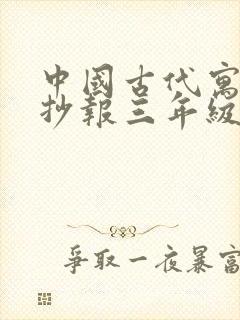 中國古代寓
抄報三年級
爭取一夜暴富